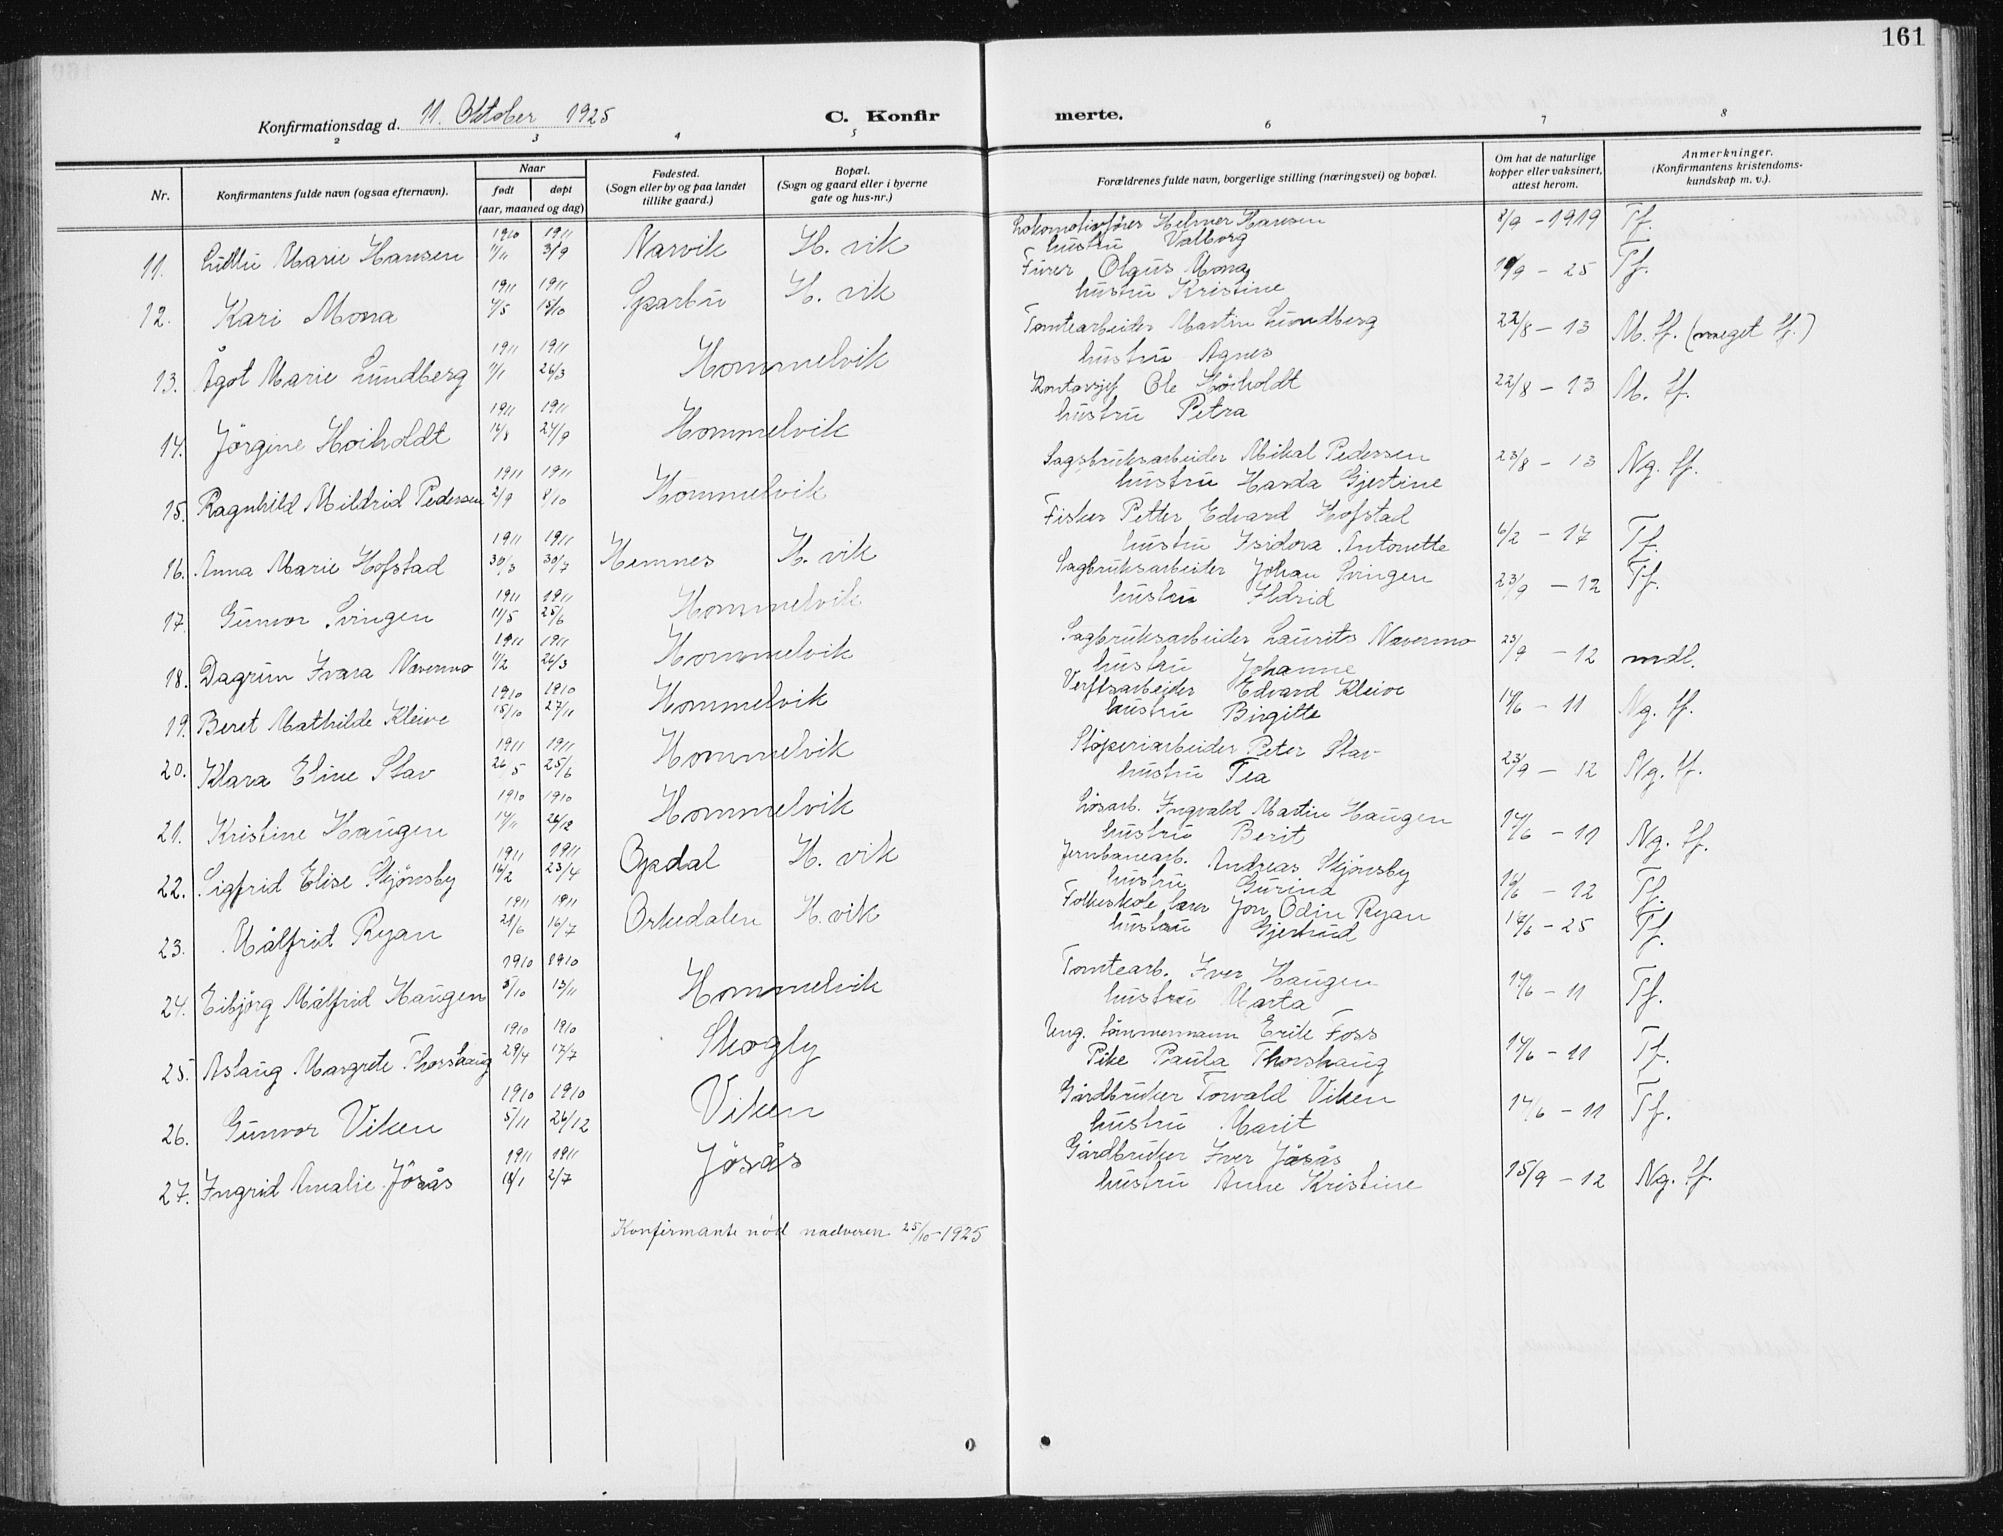 161
Konfirmationsdag d. 11. Oktober 1925
C. Konfirmerte.
2 3 4 5 6 7 8
Nr. Konfirmantens fulde navn (ogsaa efternavn). Naar født døpt (aar, maaned og dag) Fødested. (Sogn eller by og paa landet tillike gaard.) Bopæl. (Sogn og gaard eller i byerne gate og hus-nr.) Forældrenes fulde navn, borgerlige stilling (næringsvei) og bopæl. Om hat de naturlige kopper eller vaksinert, attest herom. Anmerkninger. (Konfirmantens kristendomskundskap m. v.).
11. Lullu Marie Hansen 1910 1/11 1911 3/9 Narvik H. vik Lokomotivfører Helmer Hansen hustru Valborg 8/9 - 1919 Tf.
12. Kari Mona 1911 1/5 1911 15/10 Sparbu H. vik Furer Olaus Mona hustru Kristine 19/9 - 25 Tf.
13. Ågot Marie Lundberg 1911 1/1 1911 26/3 Hommelvik Tomtearbeider Martin Lundberg hustru Agnes 22/8 - 13 M. tf. (meget tf.)
14. Jörgine Hoiholdt 1911 1911 24/9 Hommelvik Ole Höiholdt hustru Petra 22/8 - 13 M. tf.
15. Ragnhild Mildrid Pedersen 1911 2/9 1911 8/10 Hommelvik Sagsbruksarbeider Mikal Pedersen hustru Harda Gjertine 23/8 - 13 Ng. tf.
16. Anna Marie Hofstad 1911 30/3 1911 30/7 Hemnes H. vik Fisker Petter Edvard Hofstad hustru Isidora Antonette 6/2 - 17 Tf.
17. Gunvor Svingen 1911 11/5 1911 25/6 Hommelvik Sagbruksarbeider Johan Svingen hustru Ildrid 23/9 - 12 Tf.
18. Dagrun Ivara Navermo 1911 11/2 1911 26/3 Hommelvik Sagbruksarbeider Laurits Navermo hustru Johanne 23/9 - 12 mdl.
19. Beret Mathilde Kleive 1910 15/10 1910 27/11 Hommelvik Verftsarbeider Edvard Kleive hustru Birgitte 14/6 - 11 Ng. tf.
20. Klara Eline Stav 1911 26/5 1911 25/6 Hommelvik Stöperiarbeider Peter Stav hustru Tea 23/9 - 12 Ng. tf.
21. Kristine Haugen 1910 14/11 1910 26/12 Hommelvik Lösarb. Ingvald Martin Haugen hustru Berit 14/6 - 11 Ng. tf.
22. Sigfrid Elise Skjönsby 1911 16/2 1911 23/4 Opdal H. vik Jernbanearb. Andreas Skjönsby hustru Gurina 16/6 - 12 Tf.
23. Målfrid Ryan 1911 21/6 1911 16/7 Orkedalen H. vik Folkeskole lærer Jon Odin Ryan hustru Gjertrud 18/6 - 25 Tf.
24. Eibjörg Målfrid Haugen 1910 5/10 1910 13/11 Hommelvik Tomtearb. Iver Haugen hustru Marta 14/6 - 11 Tf.
25. Aslaug Margrete Thorshaug 1910 29/4 1910 17/7 Skogly Ung. tömmermann Erik Foss Pike Paula Thorshaug 14/6 - 11 Tf.
26. Gunvor Viken 1910 5/11 1910 26/12 Viken Gårdbruker Torvald Viken hustru Marit 14/6 - 11 Tf.
27. Ingrid Amalie Jösås 1911 18/1 1911 2/7 Jösås Gårdbruker Iver Jösås hustru Anne Kristine 15/9 - 12 Ng. tf.
Konfirmante nöd nadveren 25/10-1925